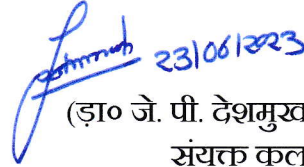 23/06/2023
(ड़ा० जे. पी. देशमुख
संयुक्त कल